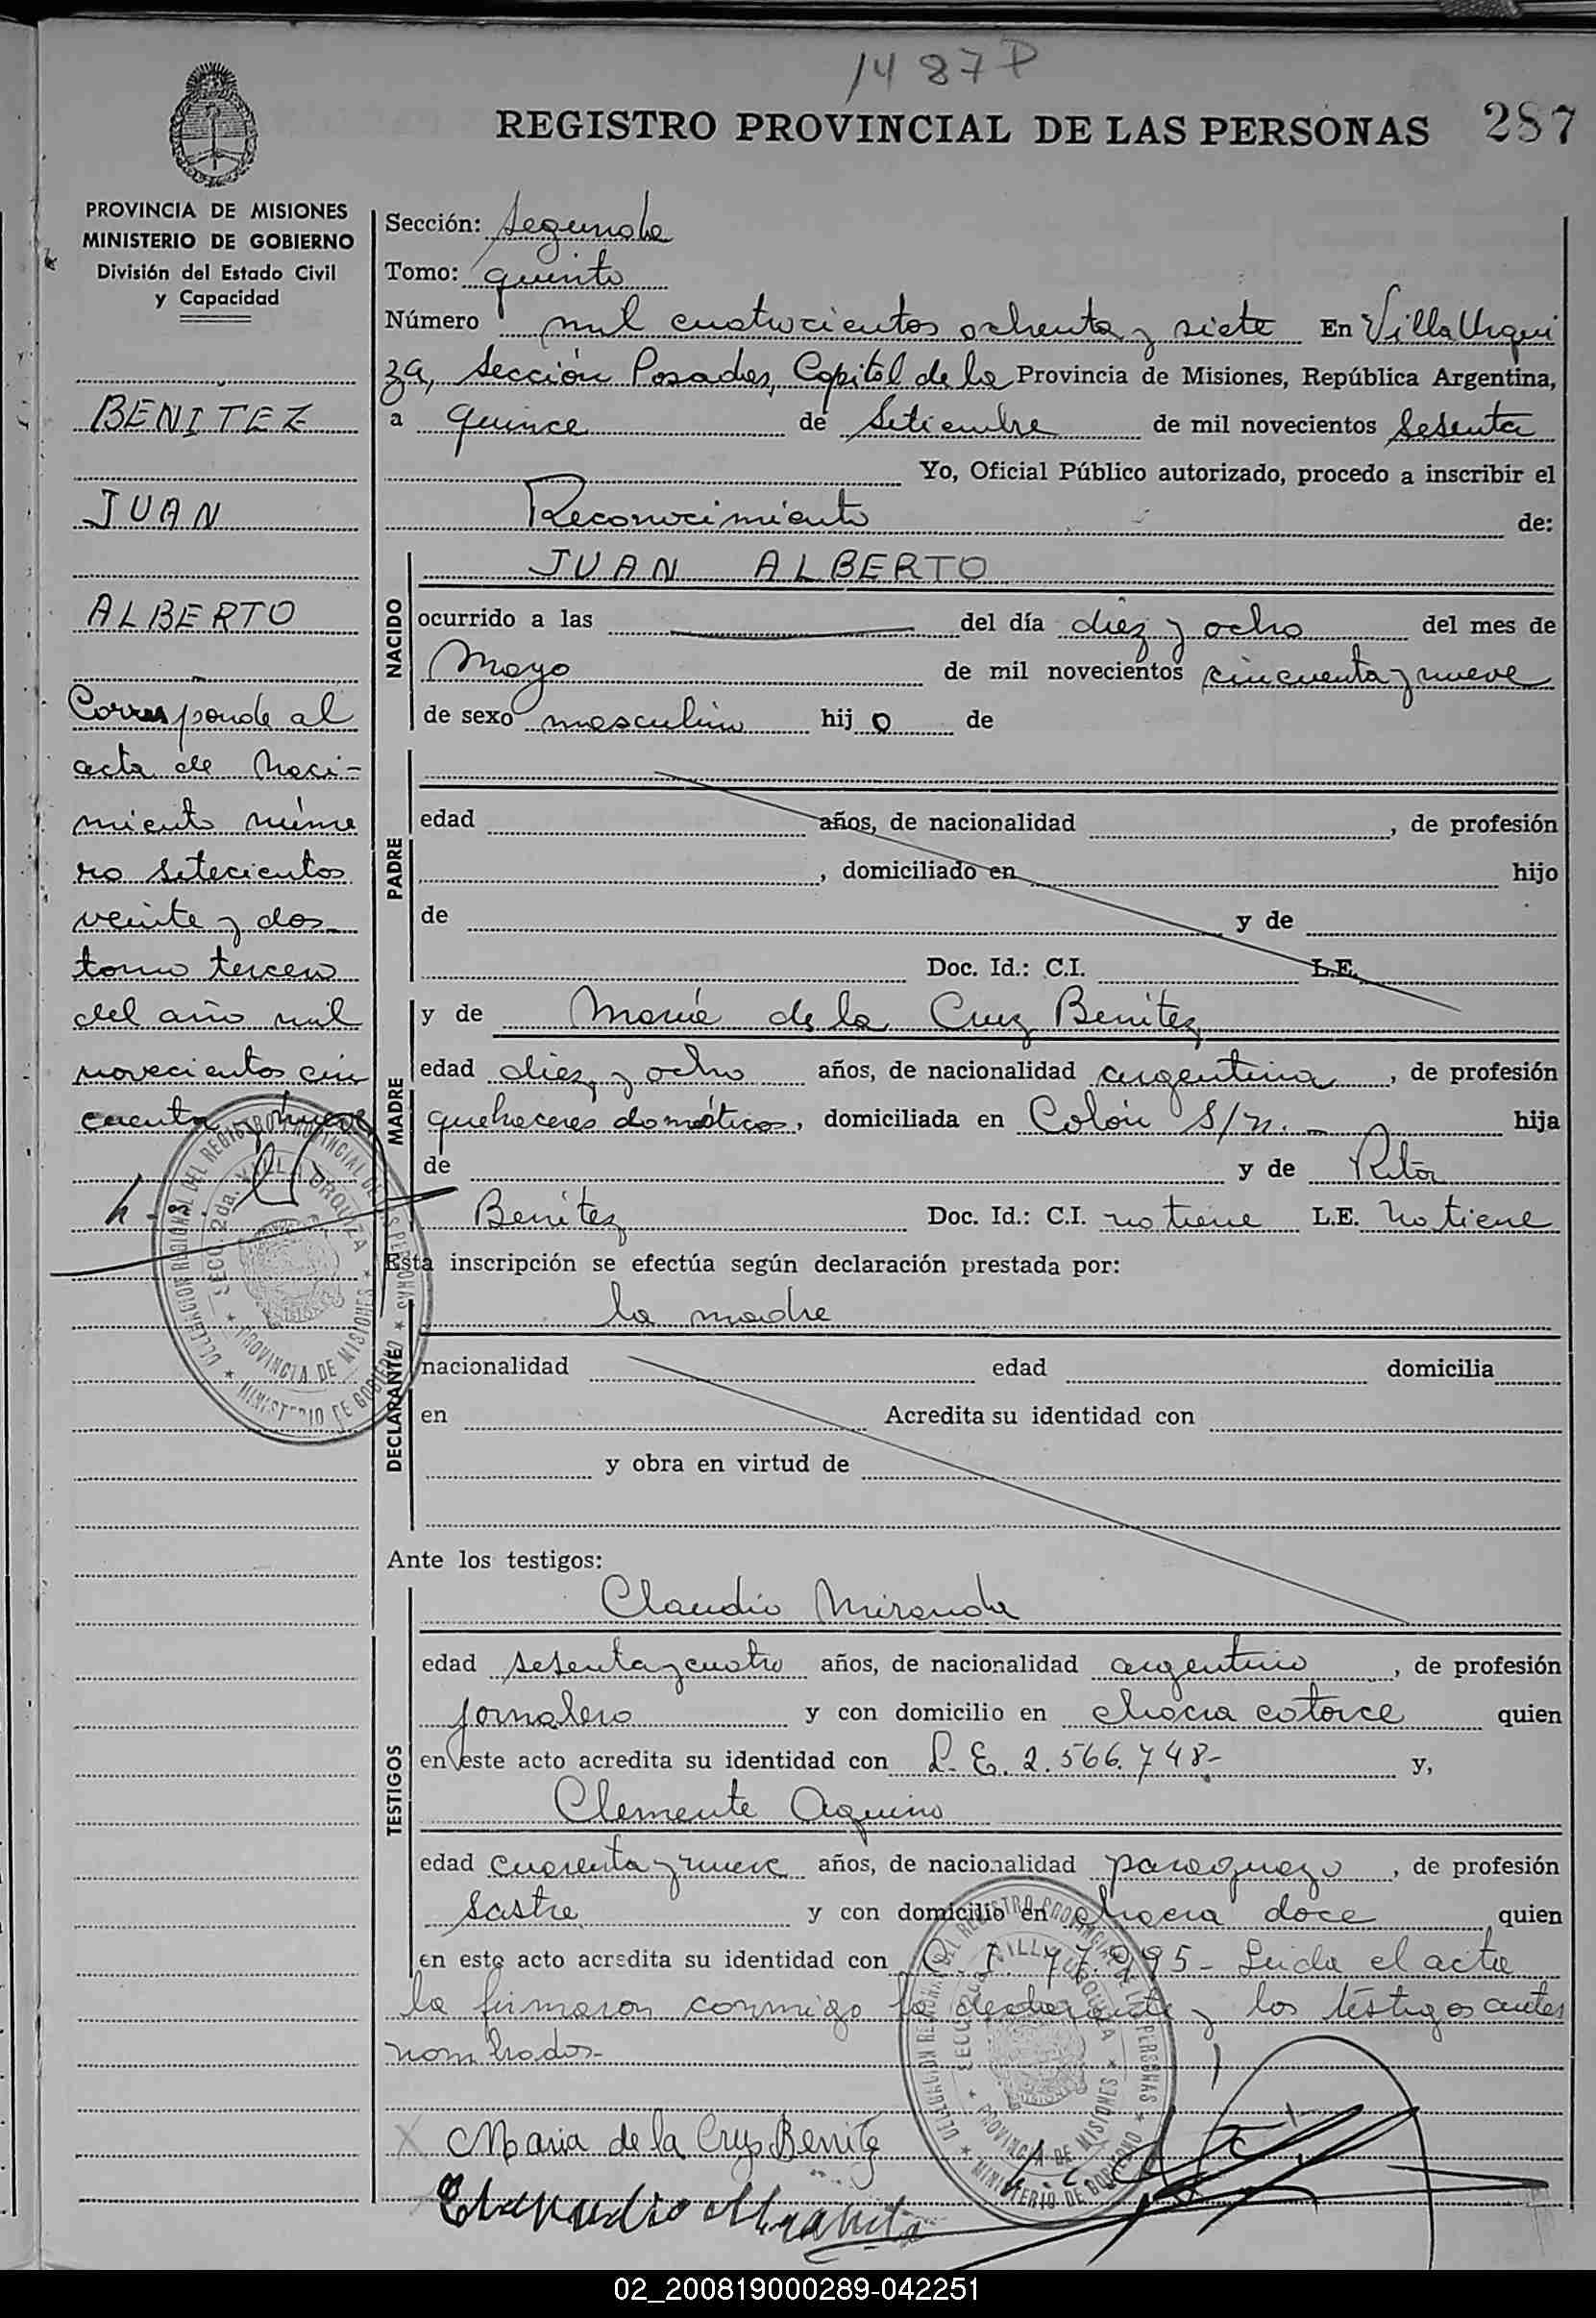 1487 P
REGISTRO PROVINCIAL DE LAS PERSONAS 287
PROVINCIA DE MISIONES
MINISTERIO DE GOBIERNO
División del Estado Civil
y Capacidad
BENITEZ
JUAN
ALBERTO
Corresponde al
acta de Naci-
miento núme
ro setecientos
veinte y dos
tomo tercero
del año mil
novecientos cin
cuenta y nueve
Sección: Segunda
Tomo: quinto
Número mil cuatrocientos ochenta y siete En Villa Urqui
za, Sección Posadas, Capital de la Provincia de Misiones, República Argentina,
a quince de Setiembre de mil novecientos Sesenta
Yo, Oficial Público autorizado, procedo a inscribir el
Reconocimiento de:
NACIDO
JUAN ALBERTO
ocurrido a las del día diez y ocho del mes de
Mayo de mil novecientos cincuenta y nueve
de sexo masculino hijo de
PADRE
edad años, de nacionalidad , de profesión
, domiciliado en hijo
de y de
Doc. Id.: C.I. L.E.
MADRE
y de María de la Cruz Benitez
edad diez y ocho años, de nacionalidad argentina, de profesión
quehaceres domésticos, domiciliada en Colón S/n.- hija
de y de Rita
Benítez Doc. Id.: C.I. no tiene L.E. No tiene
Esta inscripción se efectúa según declaración prestada por:
DECLARANTE
la madre
nacionalidad edad domicilia
en Acredita su identidad con
y obra en virtud de
Ante los testigos:
TESTIGOS
Claudio Miranda
edad sesenta y cuatro años, de nacionalidad argentino, de profesión
jornalero y con domicilio en chacra catorce quien
en este acto acredita su identidad con L. E. 2.566.748- y,
Clemente Aquino
edad cuarenta y nueve años, de nacionalidad paraguayo, de profesión
Sastre y con domicilio en chacra doce quien
en este acto acredita su identidad con C. I. 97.995- Leida el acta
la firmaron conmigo la declarante y los testigos antes
nombrados-
Maria de la Cruz Benitez
DELEGACION REGIONAL DEL REGISTRO PROVINCIAL DE LAS PERSONAS
SECC. 2da. VILLA URQUIZA
PROVINCIA DE MISIONES
MINISTERIO DE GOBIERNO
02_200819000289-042251